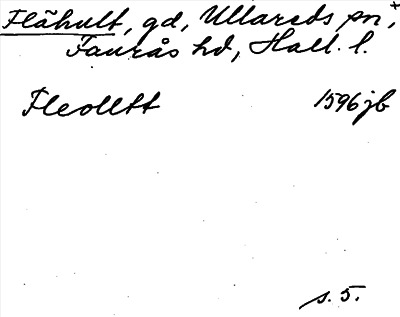 Flähult, gd, Ullareds sn,+
Faurås hd, Hall. l.
Fleolltt 1596 jb
s. 5.